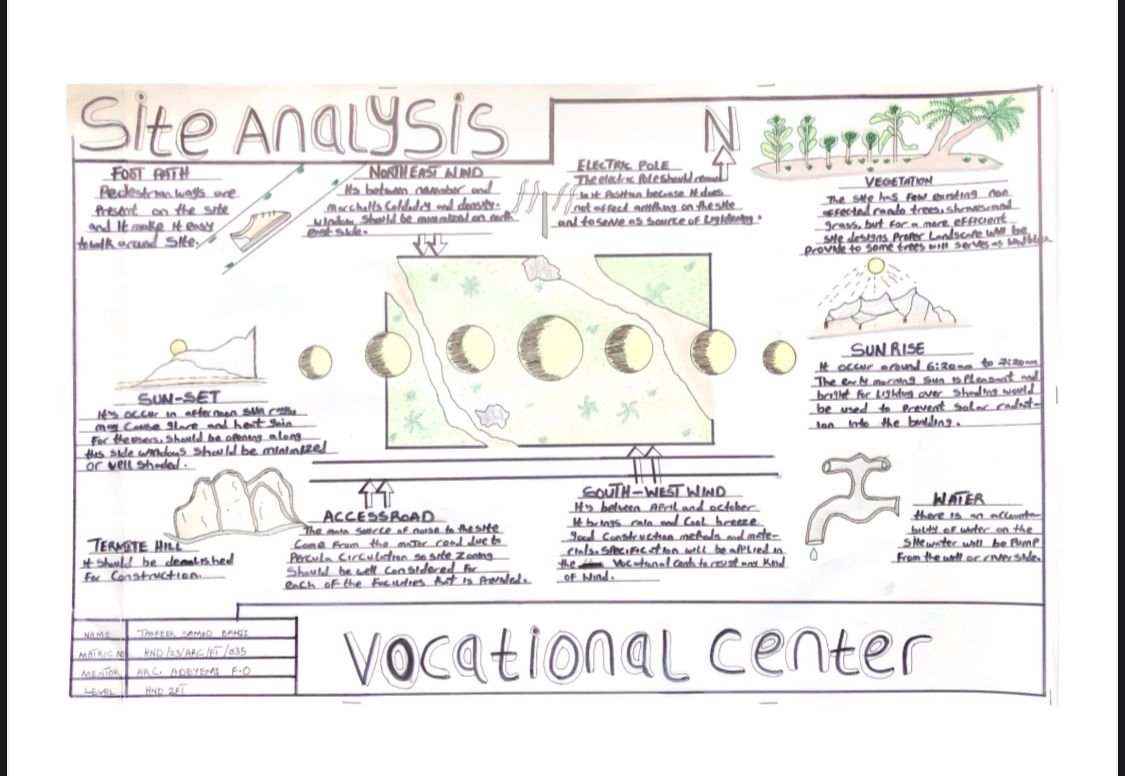 Site Analysis
N
FOOT PATH
Pedestrian ways are
Present on the site
and it make it easy
to walk around site.
NORTH EAST WIND
Its between november and
march its Cold dry and density.
Window should be minimized on north
east side.
ELECTRIC POLE
The electric Pole should remain
in it Position because it does
not affect anything on the site
and to serve as source of Lightening.
VEGETATION
The site has few existing non
affected rando trees, shrubs and
grass, but for a more efficient
site designs Proper Landscape will be
provide to some trees will serves as
SUN RISE
It occur around 6:20am to 7:20am
The early morning Sun is Pleasant and
bright for Lighting over Shading would
be used to Prevent Solar radiat-
ion into the building.
SUN-SET
It's occur in afternoon sun
may Cause glare and heat gain
For the users, should be opening along
this side windows should be minimized
or well shaded.
TERMITE HILL
it should be demolished
For Construction.
ACCESS ROAD
The main source of noise to the site
Come From the major road due to
Circulation so site zoning
Should be well Considered For
each of the Facilities that is Provided.
SOUTH-WEST WIND
It's between April and october
It brings rain and Cool breeze
good Construction methods and mate-
rials. Specification will be applied in
the Vocational Centre to resist any Kind
OF Wind.
WATER
there is an
bility of water on the
Site water will be Pump
From the well or river side.
NAME TAOFEEK SAMOD BANJI
MATRIC NO HND/23/ARC/FT/035
MENTOR ARC. ADEYEMI F.O
LEVEL HND 2FT
Vocational Center